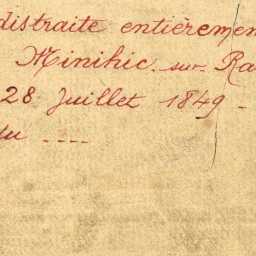 distraite entièremen
Minihic-sur-Ra
28 Juillet 1849 -
au ----